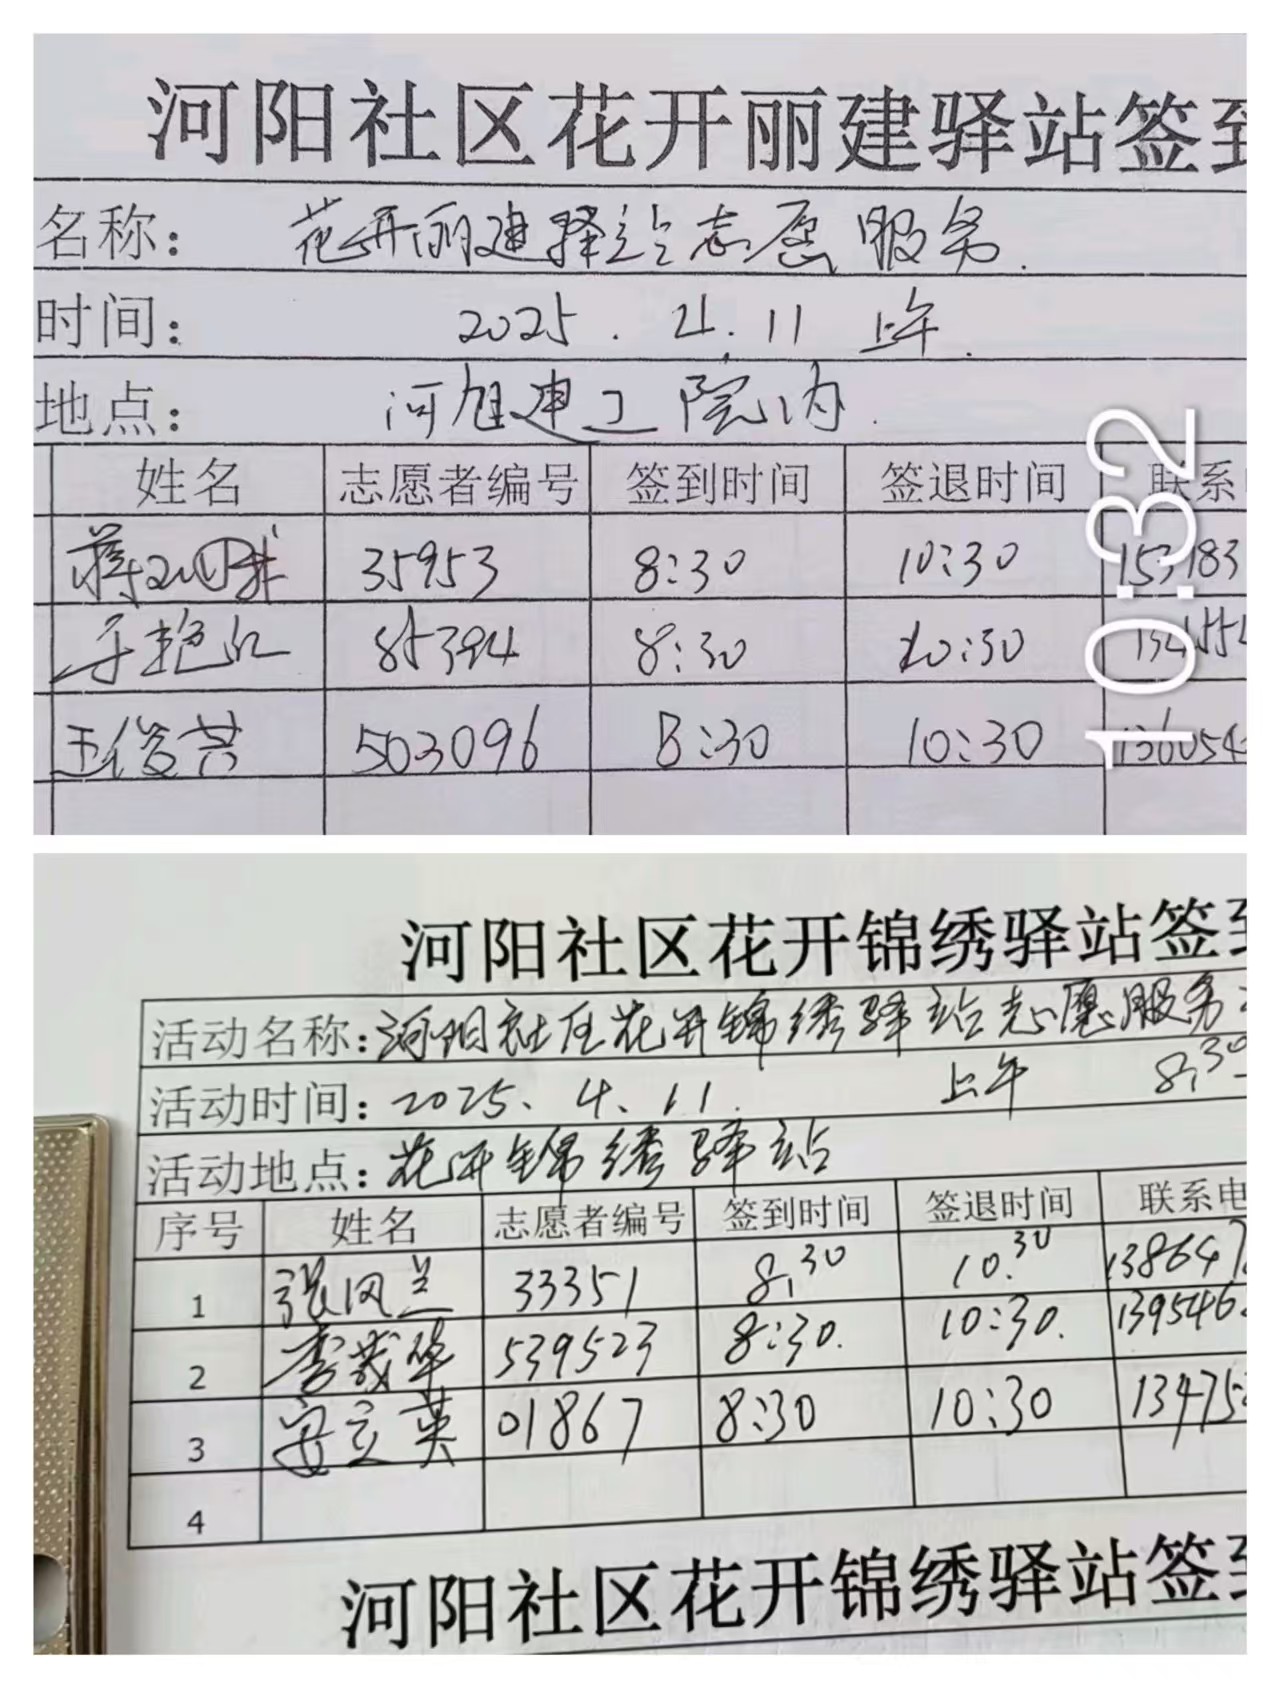 河阳社区花开丽建驿站签到
名称： 花开丽建驿站志愿服务.
时间： 2025.4.11 上午.
地点： 河阳建工院内.
姓名 志愿者编号 签到时间 签退时间 联系电
35953 8:30 10:30 153183
于艳红 85394 8:30 10:30 134554
王俊芸 503096 8:30 10:30 136054
10:32
河阳社区花开锦绣驿站签到
活动名称：河阳社区花开锦绣驿站志愿服务
活动时间：2025、4、11. 上午 8:30-
活动地点：花开锦绣驿站
序号 姓名 志愿者编号 签到时间 签退时间 联系电
1 张凤兰 33351 8:30 10:30 138647
2 李茂华 539523 8:30. 10:30. 139546
3 安立英 01867 8:30 10:30 13475
4
河阳社区花开锦绣驿站签到